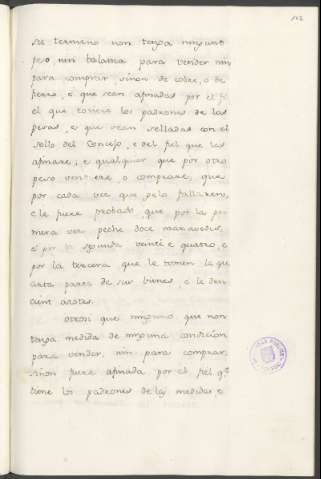 112
su termino non tenga ninguno
peso nin balanza para vender nin
para comprar, sinon de cobre, o de
fierro, e que sean afinadas por el fi
el que toviere los padrones de las
pesas, e que sean selladas con el
sello del Concejo, e del fiel que las
afinare; e qualquier que por otro
peso vendiere, o comprare, que
por cada vez que gelo fallaren,
e le fuere probado, que por la pri
mera vez peche doce maravedis,
e por la segunda veinti e quatro, e
por la tercera que le tomen la qu
arta parte de sus bienes, e le den
cient azotes.
Otrosi que ninguno que non
tenga medida de ninguna condicion
para vender, nin para comprar,
sinon fuere afinada por el fiel q.e
tiene los padrones de las medidas e